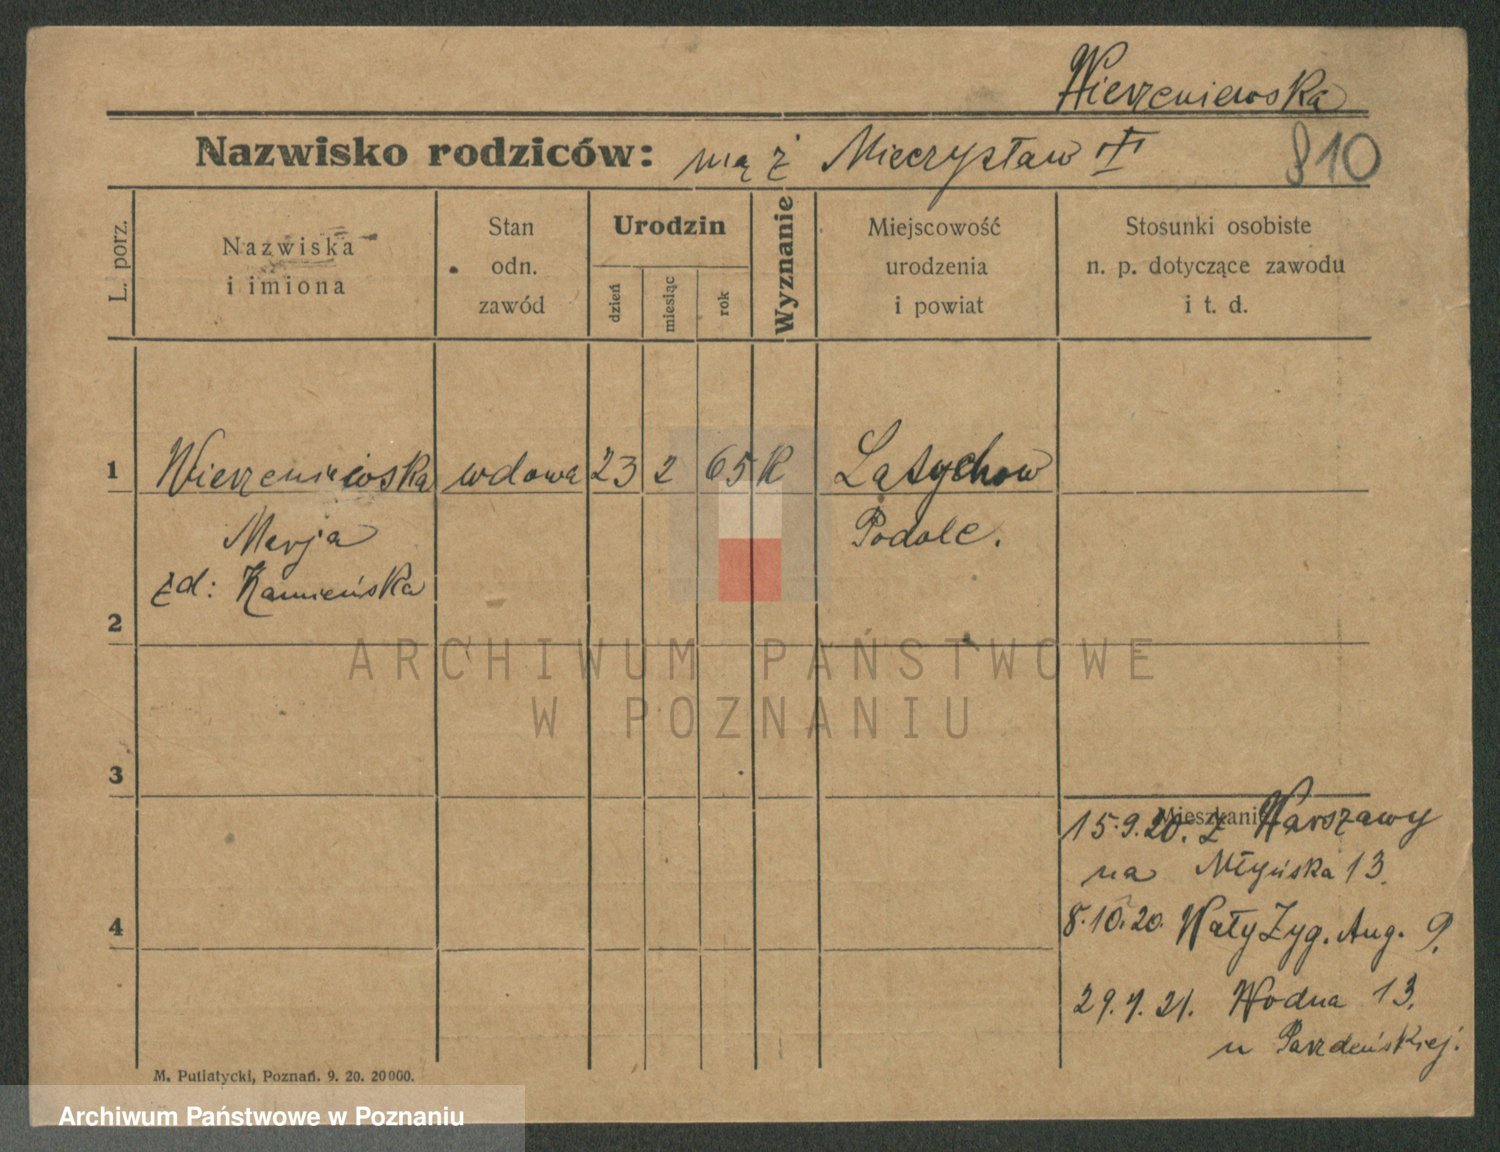 Wierzeniewska
Nazwisko rodziców: mąż Mieczysław
810
L. porz.
Nazwiska
i imiona
Stan
odn.
zawód
Urodzin
dzień
miesiąc
rok
Wyznanie
Miejscowość
urodzenia
i powiat
Stosunki osobiste
n. p. dotyczące zawodu
i t. d.
1 Wierzeniewska wdowa 23 2 65 K Latychow
Marja Podole.
zd: Kamieńska
2
ARCHIWUM PAŃSTWOWE
W POZNANIU
3
Mieszkanie
15.9.20. z Warszawy
na Młyńska 13.
8.10.20. Wały Zyg. Aug. 9.
4
29.7.21. Wodna 13.
u
M. Putiatycki, Poznań. 9. 20. 20000.
Archiwum Państwowe w Poznaniu